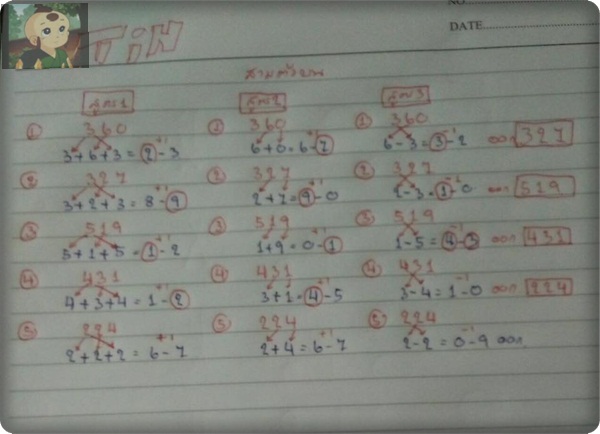 NO.
DATE
TiN
สามตัวบน
สูตร1 สูตร2 สูตร3
① 360 ① 360 ① 360
3+6+3=2-3 +1 6+0=6-7 +1 6-3=3-2 -1 ออก 327
② 327 ② 327 ② 327
3+2+3=8-9 +1 2+7=9-0 +1 2-3=1-0 -1 ออก 519
③ 519 ③ 519 ③ 519
5+1+5=1-2 +1 1+9=0-1 +1 1-5=4-3 -1 ออก 431
④ 431 ④ 431 ④ 431
4+3+4=1-2 +1 3+1=4-5 +1 3-4=1-0 -1 ออก 224
⑤ 224 ⑤ 224 ⑤ 224
2+2+2=6-7 +1 2+4=6-7 +1 2-2=0-9 -1 ออก